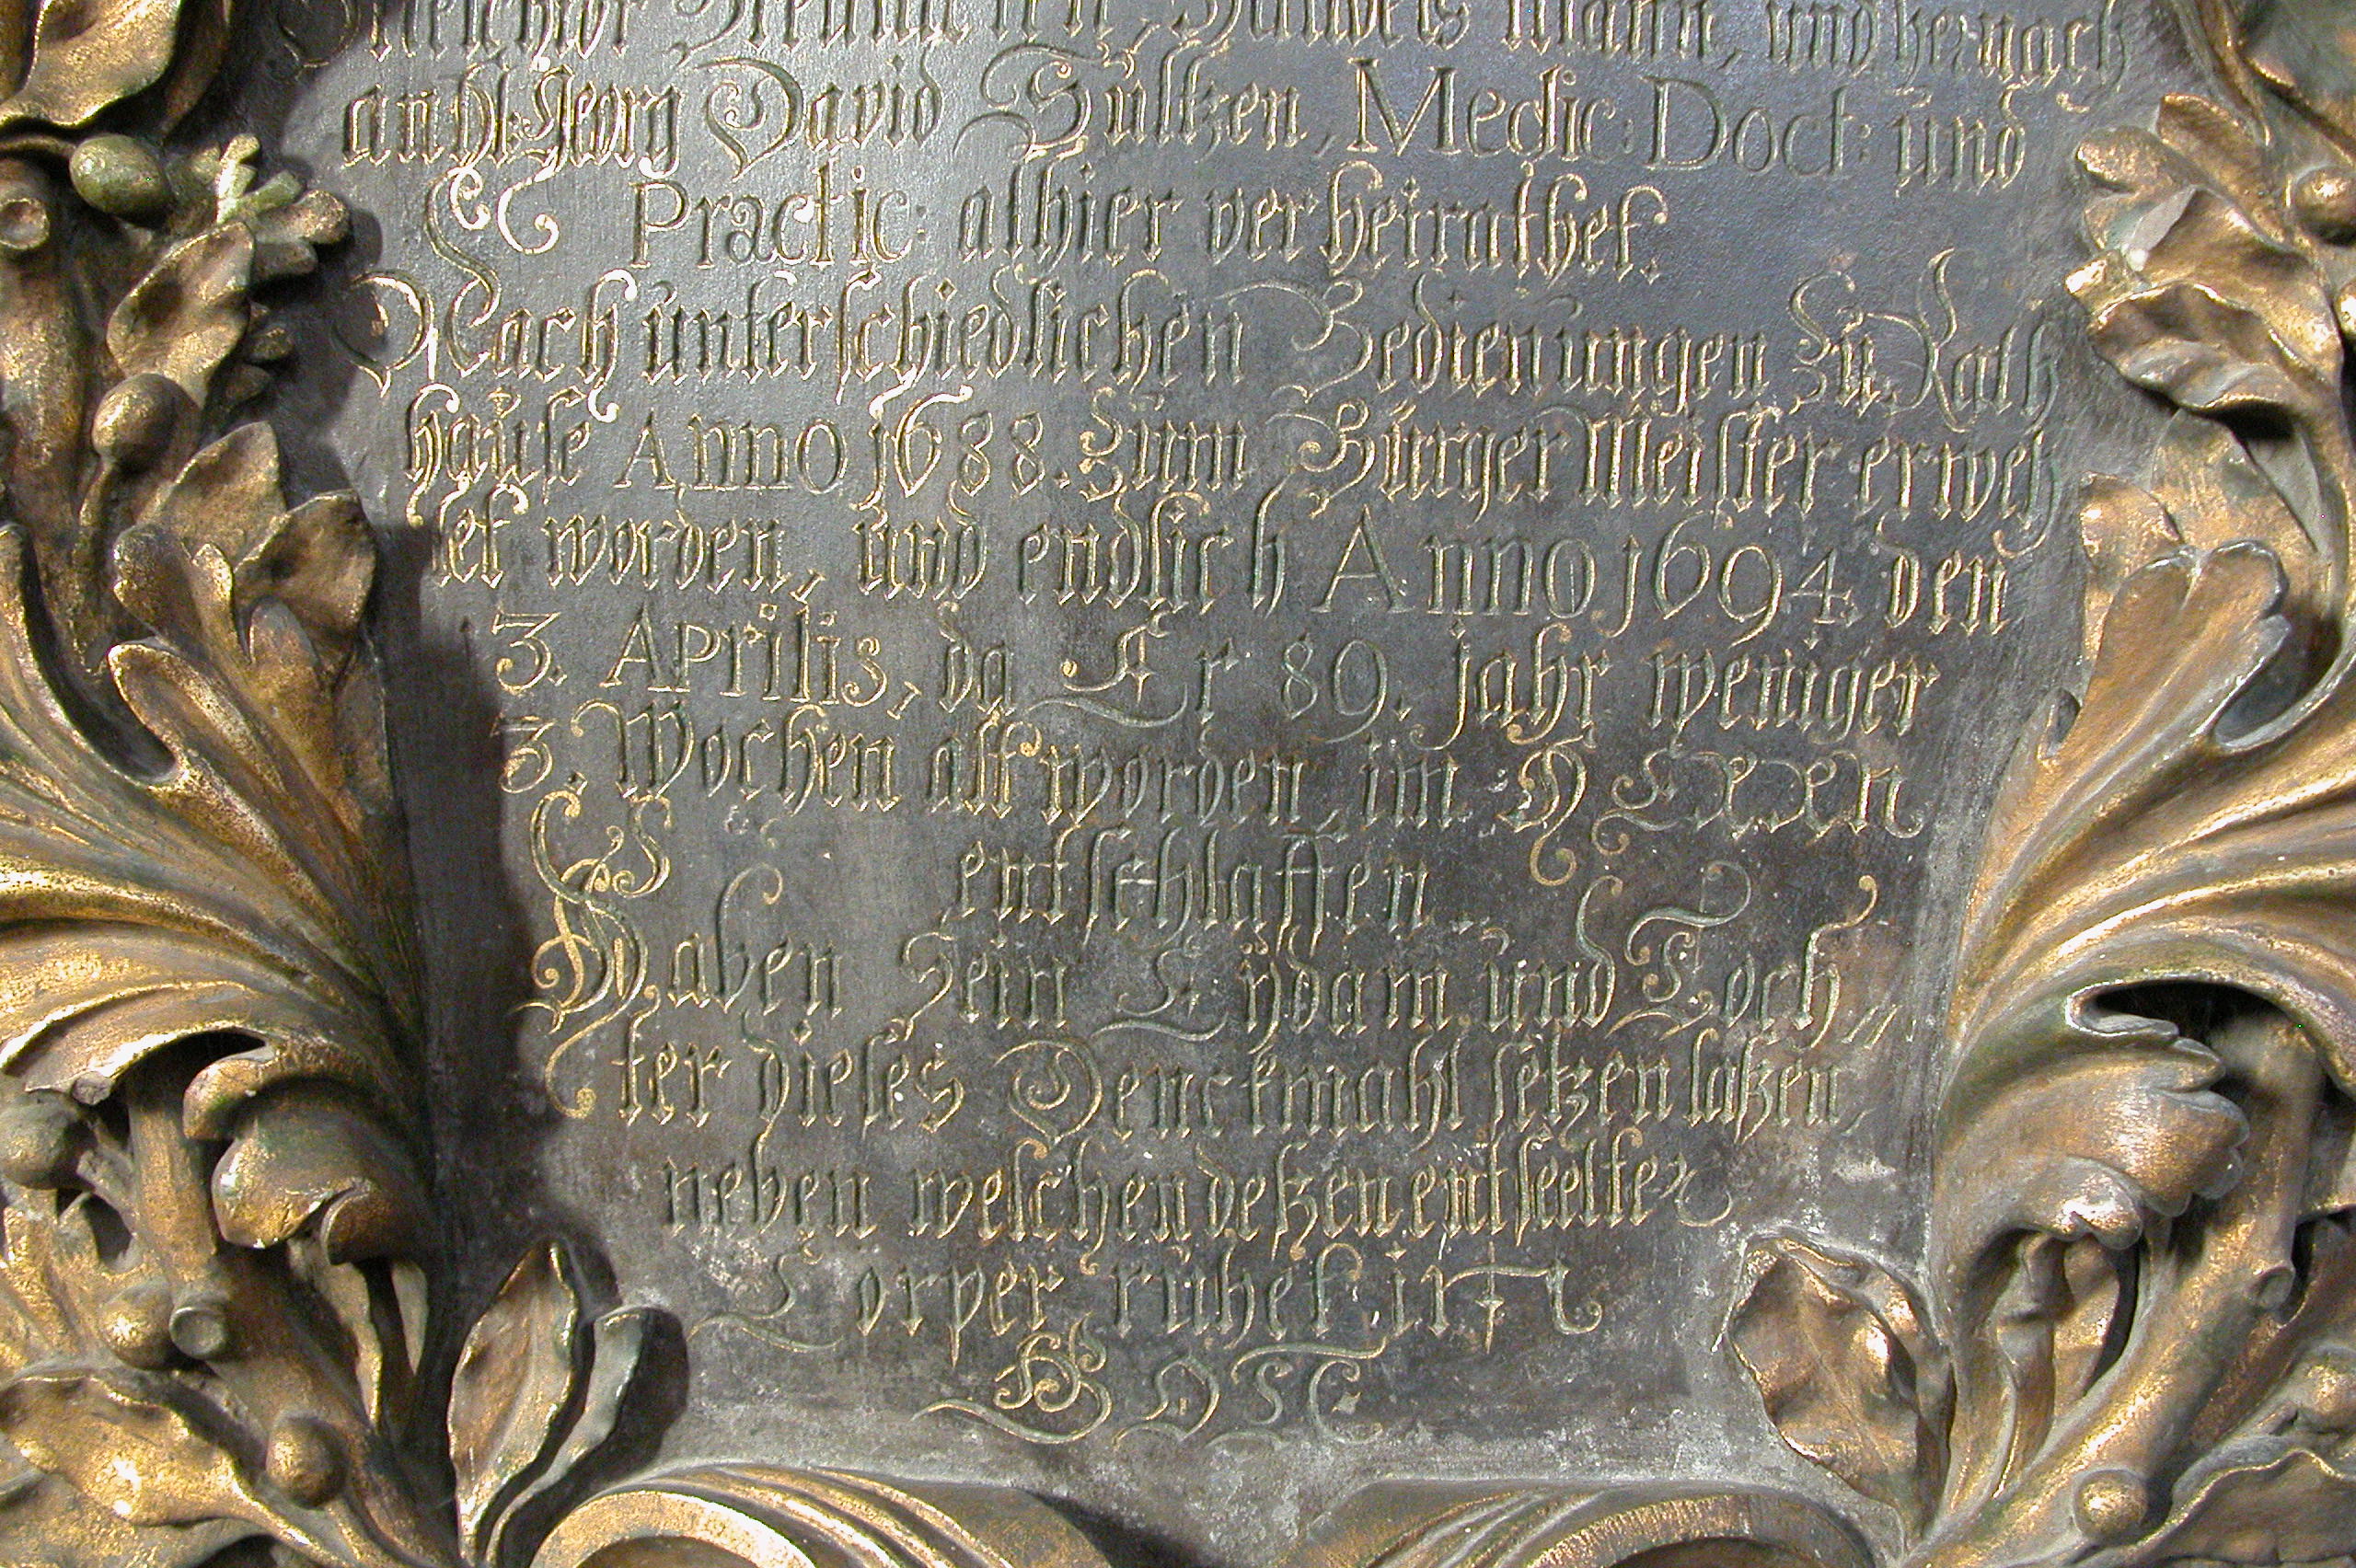 Melchior Handels Mann, und hernach
an Hl: Georg David Sültzen, Medic: Doct: und
Practic: alhier verheirathet.
Nach unterschiedlichen Bedienungen zu Rath
hause Anno 1688. zum Bürger Meister erweh
let worden, und endlich Anno 1694. den
3. Aprilis, da Er 89. jahr weniger
3. Wochen alt worden, im HErren
entschlaffen.
Haben Sein Eÿdam und Toch„
ter dieses Denckmahl setzen laßen,
neben welchen deßen entseelter
Cörper ruhet, in